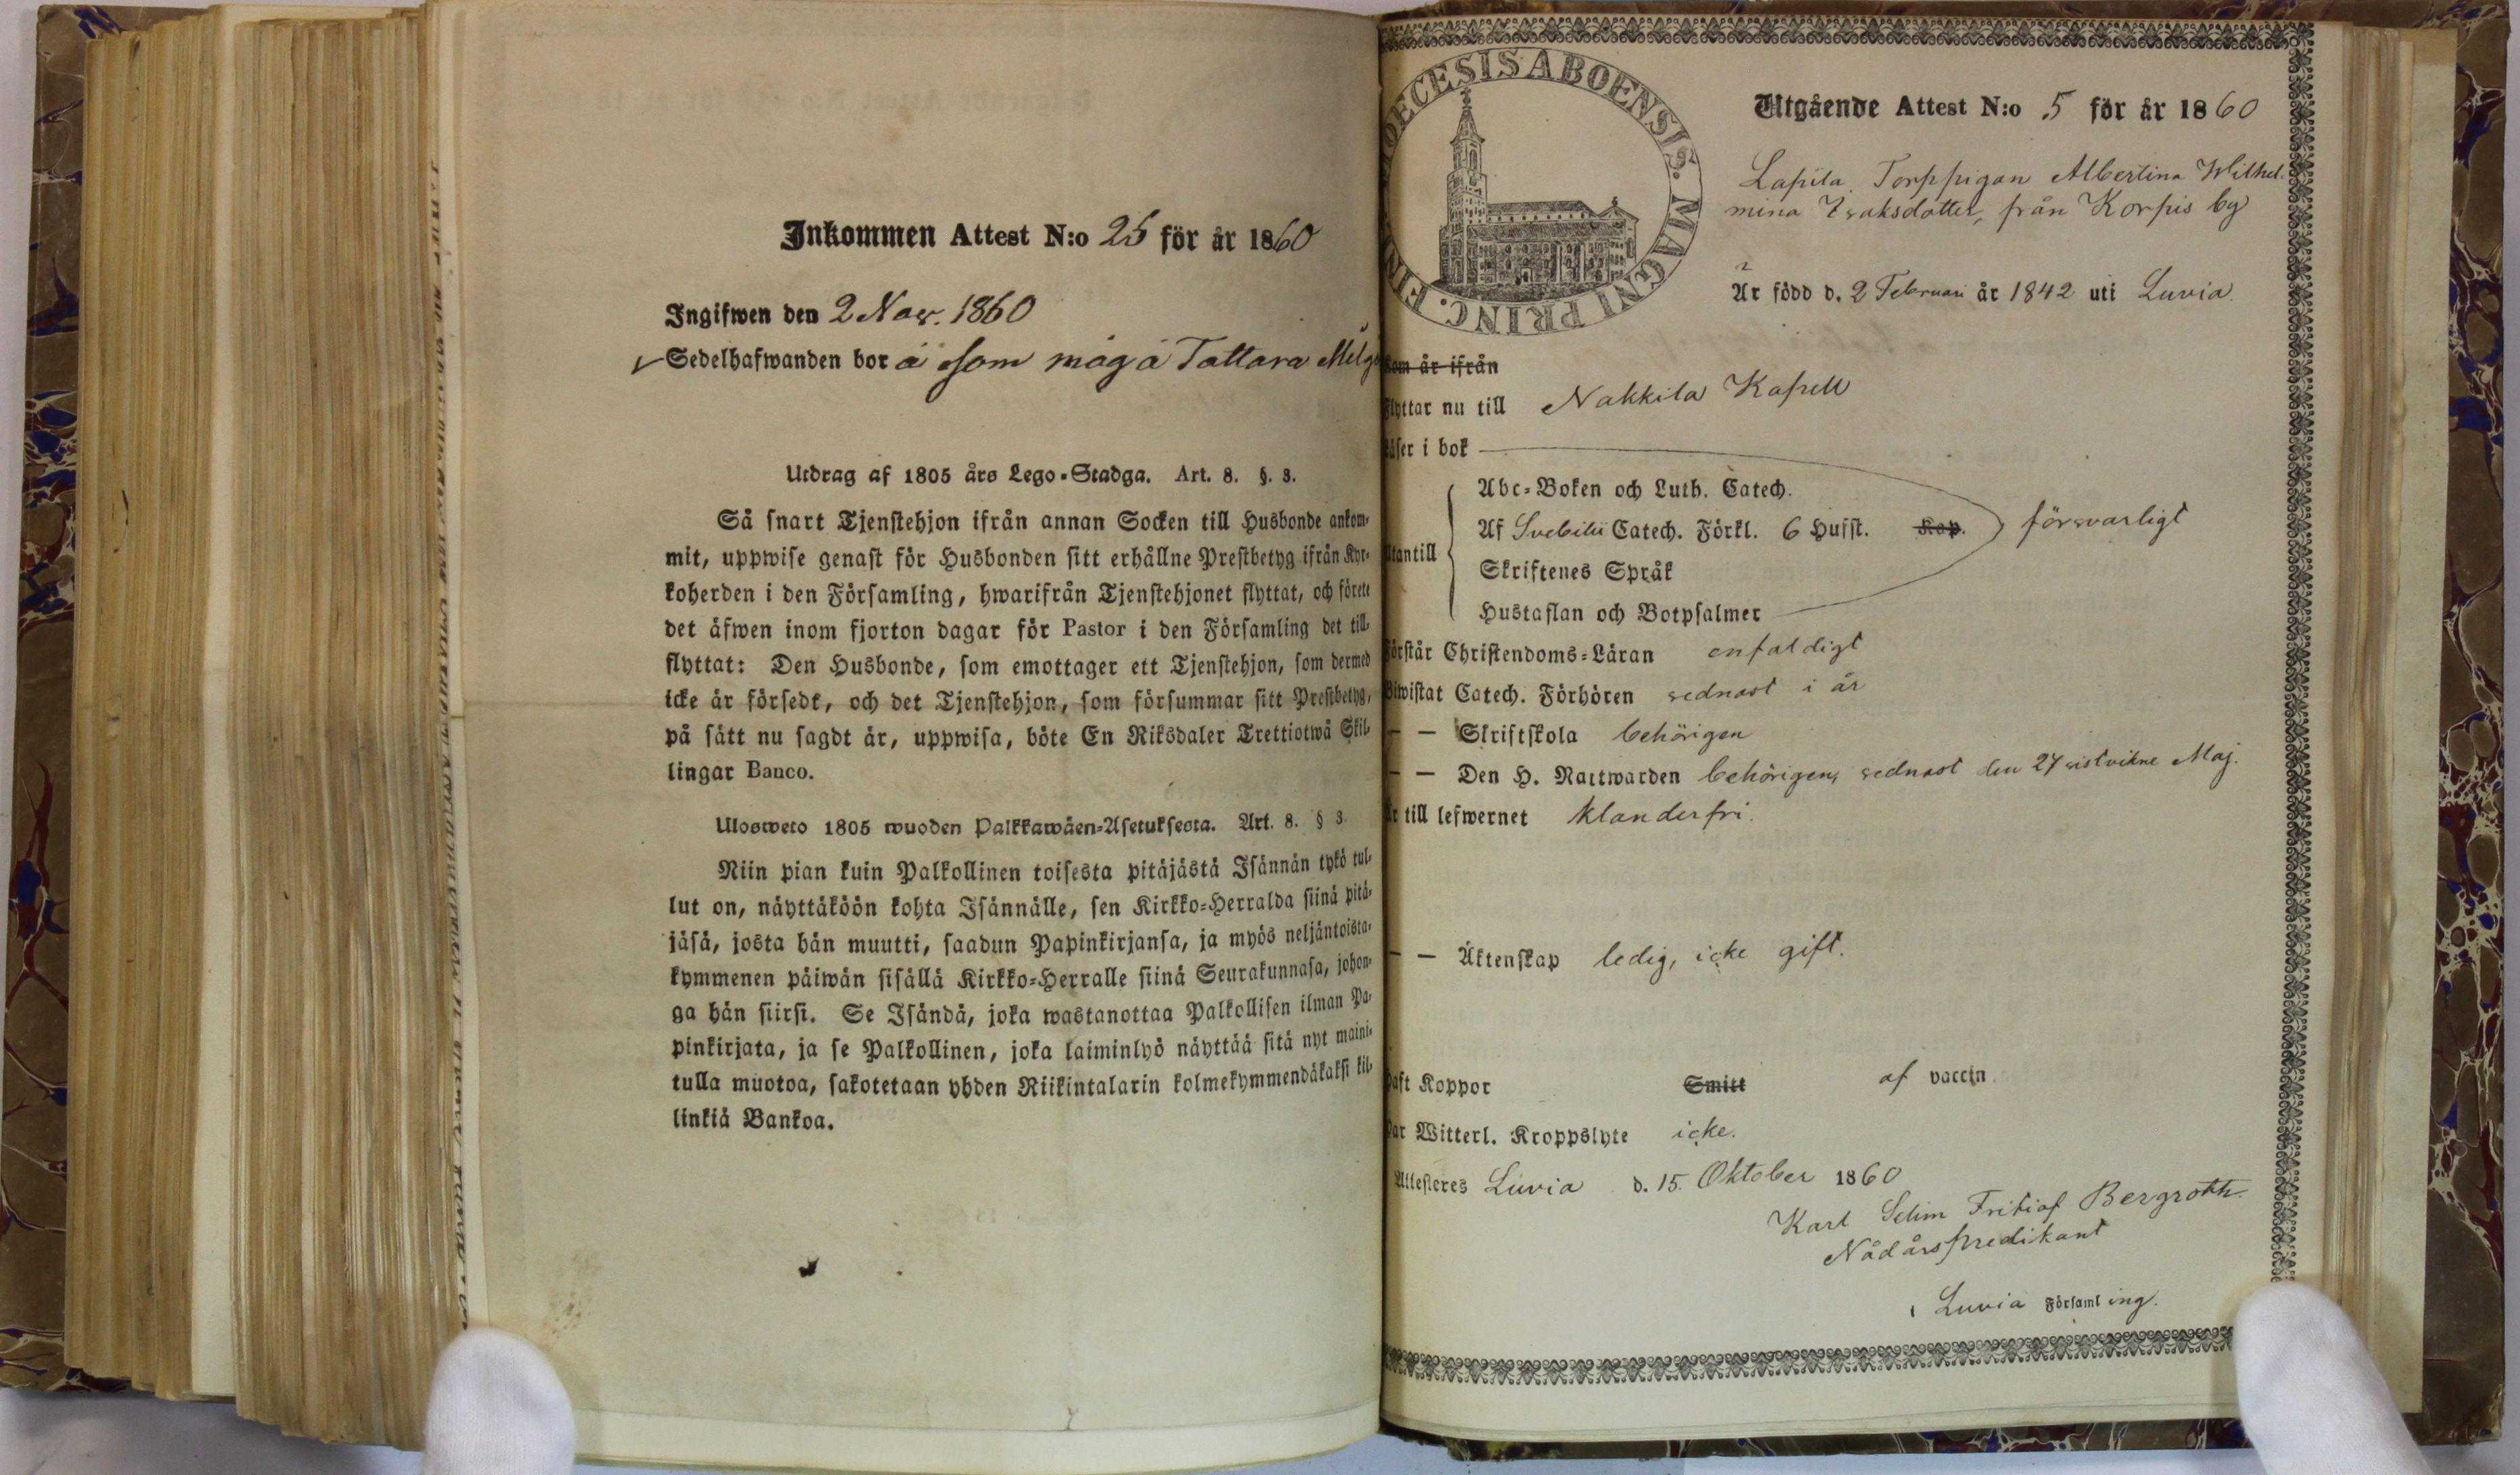 Inkommen Attest N:o 25 för år 1860
Ingifwen den 2 Nov. 1860
Sedelhafwanden bor å som måg å Tattara
Utdrag af 1805 års Lego-Stadga. Art. 8. §. 3.
Så snart Tjenstehjon ifrån annan Socken till Husbonde ankom-
mit, uppwise genast för Husbonden sitt erhållne Prestbetyg ifrån Kyr-
koherden i den Församling, hwarifrån Tjenstehjonet flyttat, och förete
det äfwen inom fjorton dagar för Pastor i den Församling det till-
flyttat: Den Husbonde, som emottager ett Tjenstehjon, som dermed
icke är försedt, och det Tjenstehjon, som försummar sitt Prestbetyg,
på sätt nu sagdt är, uppwisa, böte En Riksdaler Trettiotwå Skil-
lingar Banco.
Ulosweto 1805 wuoden Palkkawäen-Asetuksesta. Art. 8. § 3.
Niin pian kuin Palkollinen toisesta pitäjästä Isännän tykö tul-
lut on, näyttäköön kohta Isännälle, sen Kirkko-Herralda siinä pitä-
jäsä, josta hän muutti, saadun Papinkirjansa, ja myös neljäntoista-
kymmenen päiwän sisällä Kirkko-Herralle siinä Seurakunnasa, johon-
ga hän siirsi. Se Isändä, joka wastanottaa Palkollisen ilman Pa-
pinkirjata, ja se Palkollinen, joka laiminlyö näyttää sitä nyt maini-
tulla muotoa, sakotetaan yhden Riikintalarin kolmekymmendäkaksi kil-
linkiä Bankoa.
DIOECESIS ABOENSIS. MAGNI PRINC. FINL
Utgående Attest N:o 5 för år 1860
Lapila. Torppigan Albertina Wilhel-
mina Isaksdotter, från Korpis by
Är född d. 2 Februari år 1842 uti Luvia.
Kom år ifrån
Flyttar nu till Nakkila Kapell
Läser i bok
Abc-Boken och Luth. Catech.
Utantill Af Svebilii Catech. Förkl. 6 Hufst. Kap. försvarligt
Skriftenes Språk
Hustaflan och Botpsalmer
Förstår Christendoms-Läran enfaldigt
Biwistat Catech. Förhören sednast i år
— — Skriftskola behörigen
— — Den H. Nattwarden behörigen, sednast den 27 sistvikne Maj.
Är till lefwernet klanderfri.
— — Äktenskap ledig, icke gift.
Haft Koppor Smitt af vaccin
Har Witterl. Kroppslyte icke.
Attesteres Luvia d. 15. Oktober 1860
Karl Selim Fritiof Bergroth.
Nådårspredikant
i Luvia Församling.